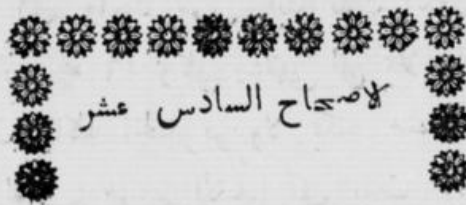 الاصحاح السادس عشر